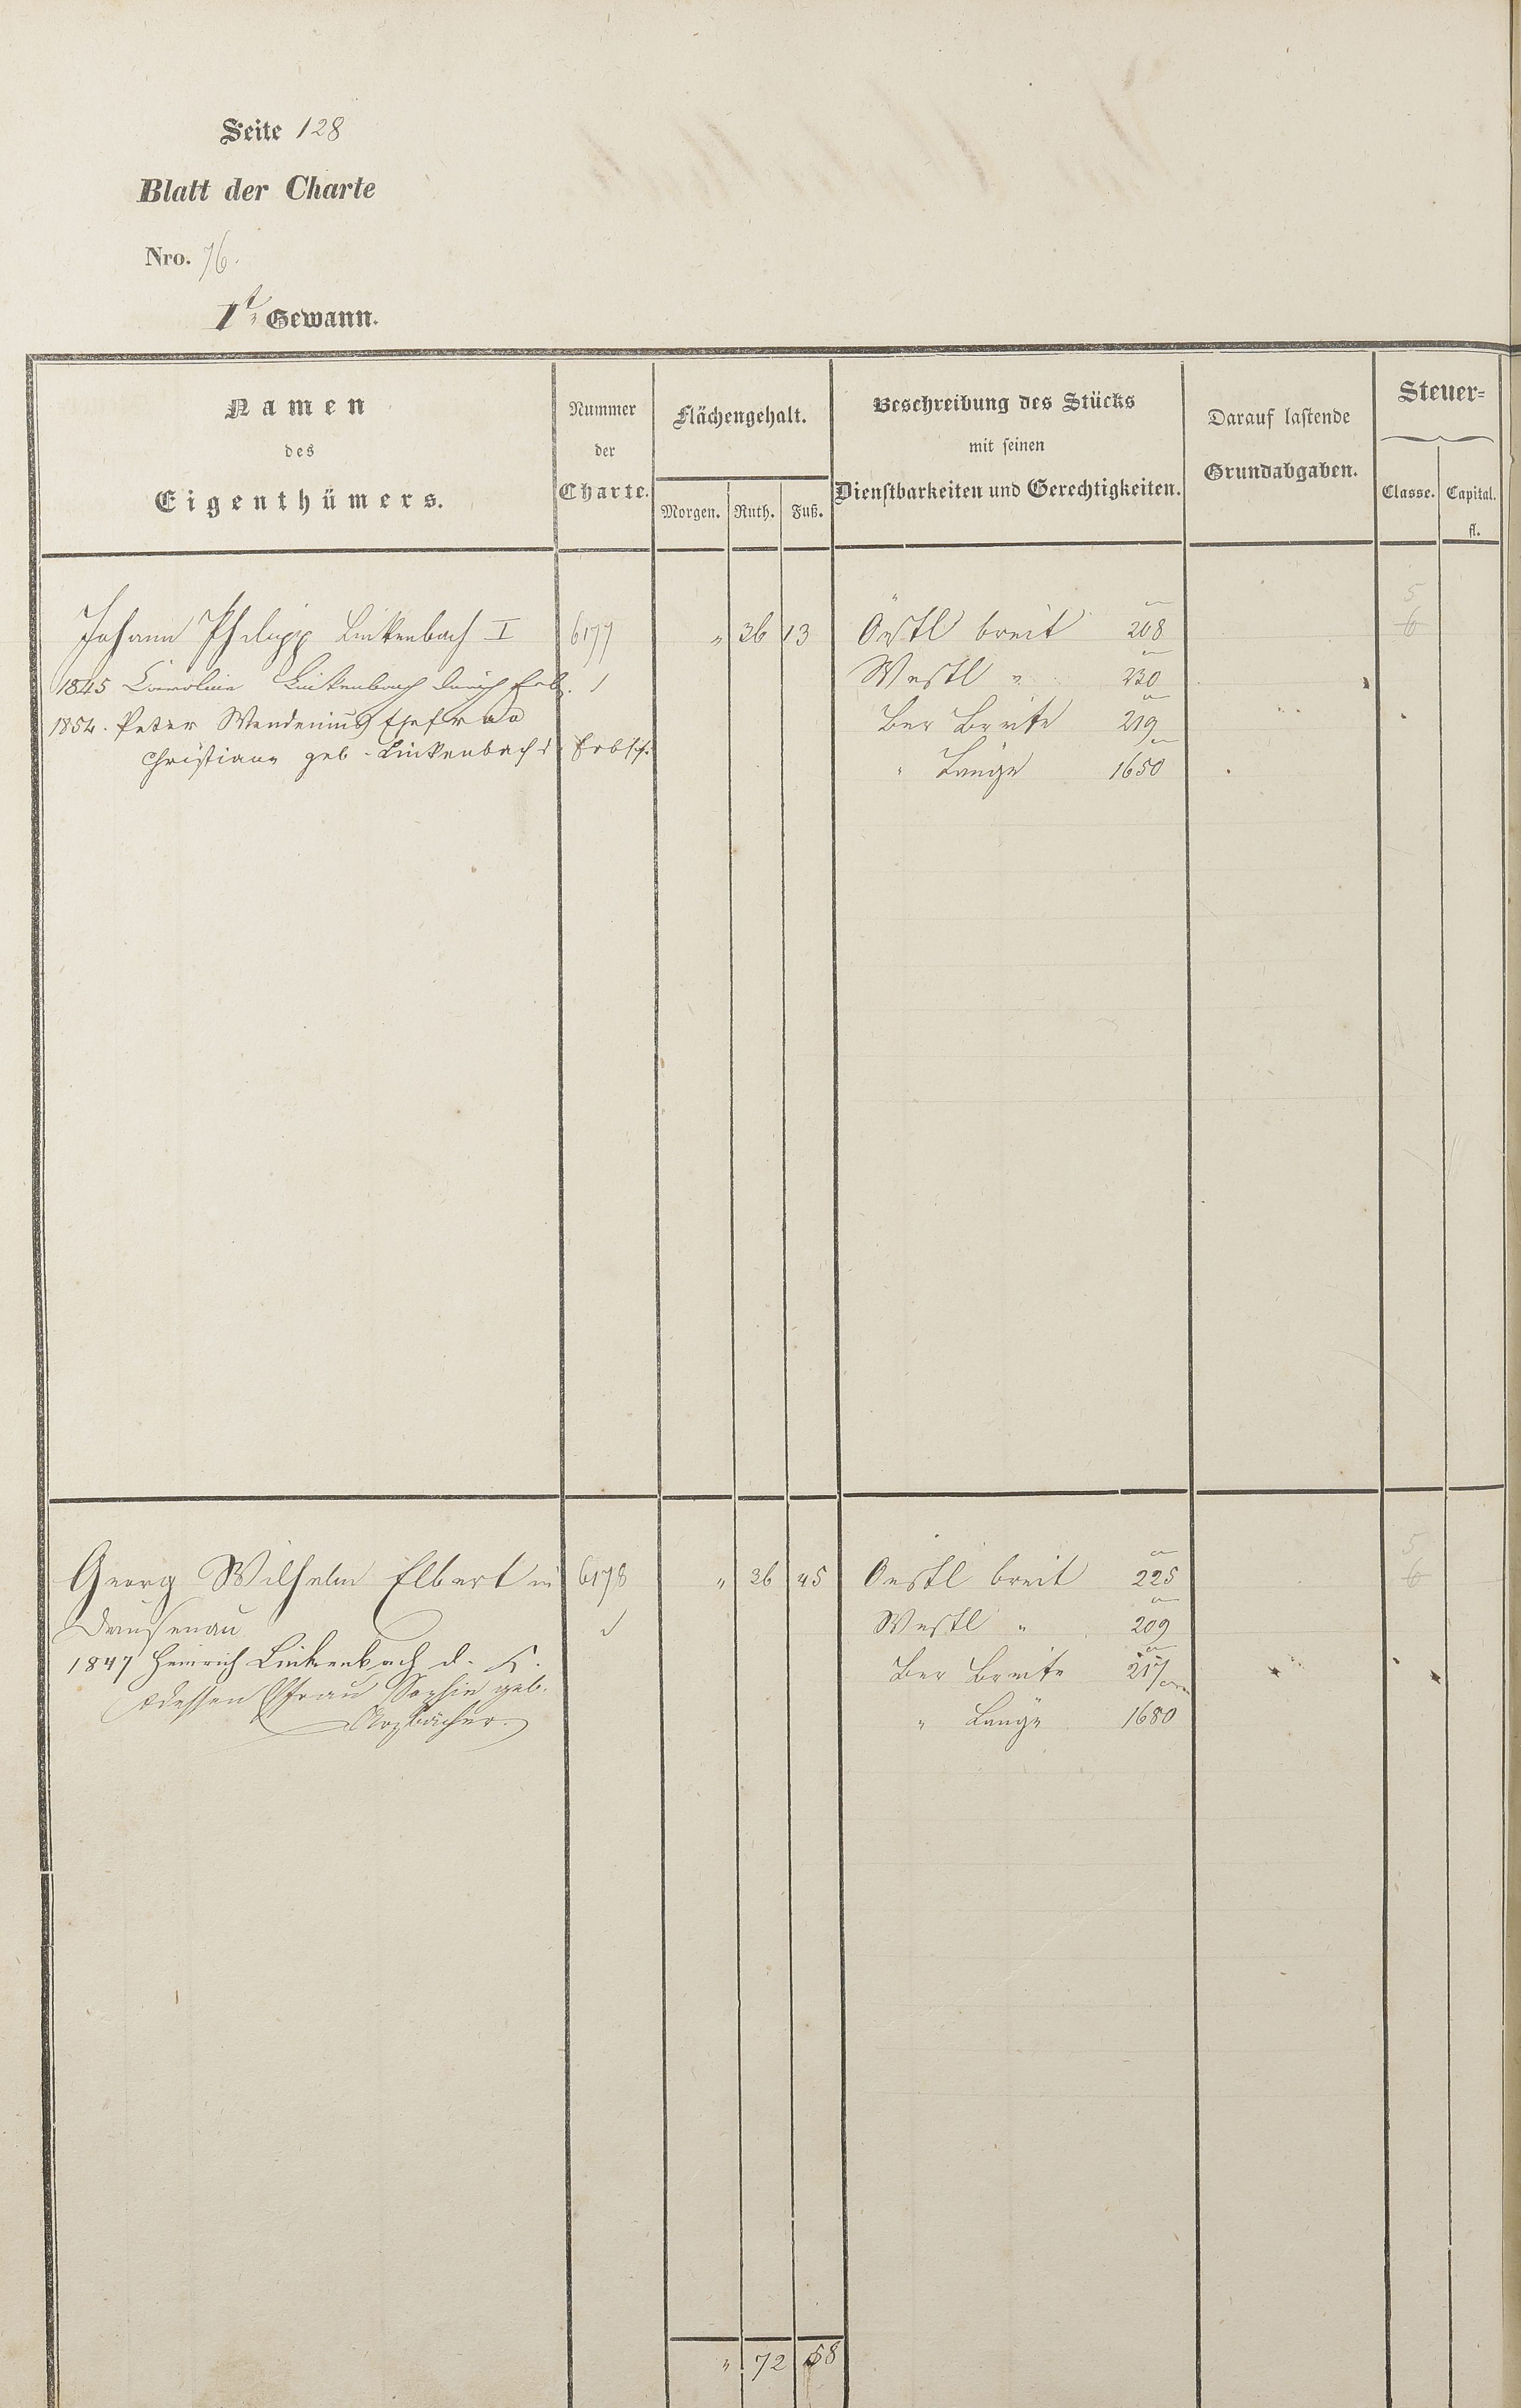 Seite 128
Blatt der Charte
Nro. 76.
1t Gewann.
Namen des Eigenthümers.
Nummer der Charte.
Flächengehalt.
Morgen. Ruth. Fuß.
Beschreibung des Stücks mit seinen Dienstbarkeiten und Gerechtigkeiten.
Darauf lastende Grundabgaben.
Steuer=
Classe. Capital. fl.
Johann Philipp Linkenbach I 6177 " 36 13 Östl breit 208 5 6
1845 Caroline Linkenbach durch Erb. Westl " 230
1854. Peter Wendenius Ehefrau Ber Breite 219
Christiane geb. Linkenbach d. Erbsch. " Länge 1650
Georg Wilhelm Elbert in 6178 " 36 45 Oestl breit 225 5 6
Dausenau Westl " 209
1847 Heinrich Linkenbach d. K. Ber Breite 217
dessen Ehfrau Sophie geb. " Länge 1680
" 72 58